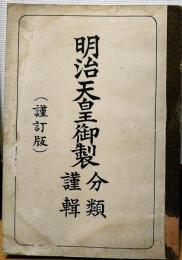 明治天皇御製
分類
謹輯
（謹訂版）